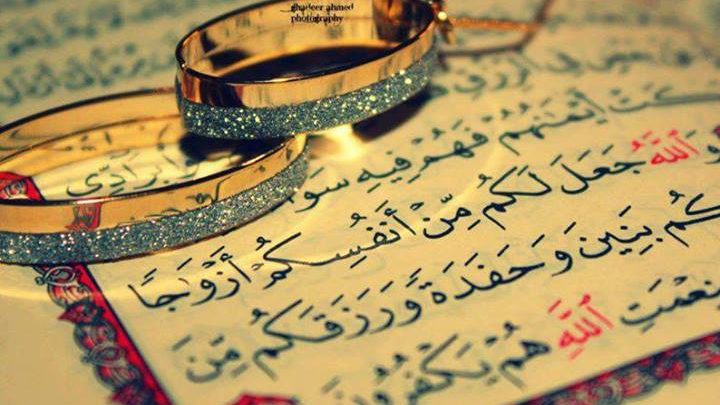 ghadeer ahmed
photography
فِي الرِّزْقِ بِرَآدِّي
كَتْ أَيْمَٰنُهُمْ فَهُمْ فِيهِ سَوَا
وَٱللَّهُ جَعَلَ لَكُم مِّنْ أَنفُسِكُمْ أَزْوَٰجًا
كُم بَنِينَ وَحَفَدَةً وَرَزَقَكُم مِّنَ
نِعْمَتِ ٱللَّهِ هُمْ يَكْفُرُونَ